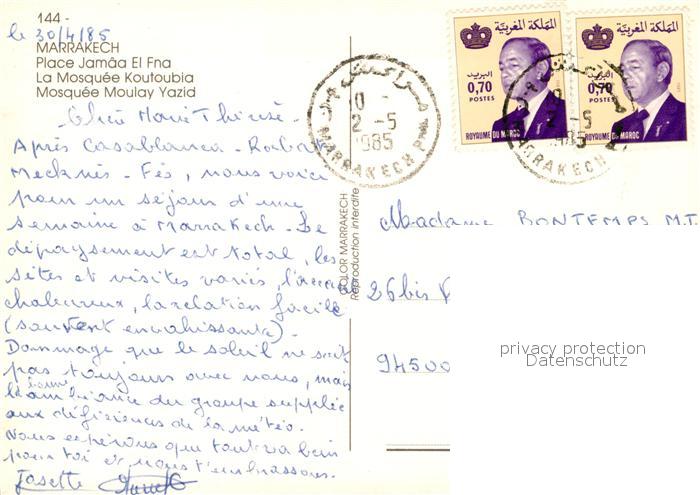 144 -
le 30/4/85
MARRAKECH
Place Jamâa El Fna
La Mosquée Koutoubia
Mosquée Moulay Yazid
Chère Marie Thérèse.
Après Casablanca - Rabat
Mecknès - Fés, nous voici
pour un séjour d'une
semaine à Marrakech. Le
dépaysement est total, les
sites et visites variés, l'accueil
chaleureux, la relation facile
(souvent envahissante).
Dommage que le soleil ne soit
pas toujours avec nous, mais
la bonne ambiance du groupe supplée
aux déficiences de la météo.
Nous espérons que tout va bien
pour toi et nous t'embrassons.
Josette
COLOR MARRAKECH
Reproduction interdite
المملكة المغربية
البريد
0,70
POSTES
ROYAUME DU MAROC
المملكة المغربية
البريد
0,70
POSTES
ROYAUME DU MAROC
مراكش
10 -
2 - 5
1985
MARRAKECH
2 - 5
1985
MARRAKECH
Madame BONTEMPS M.T.
26 bis
94500
privacy protection
Datenschutz